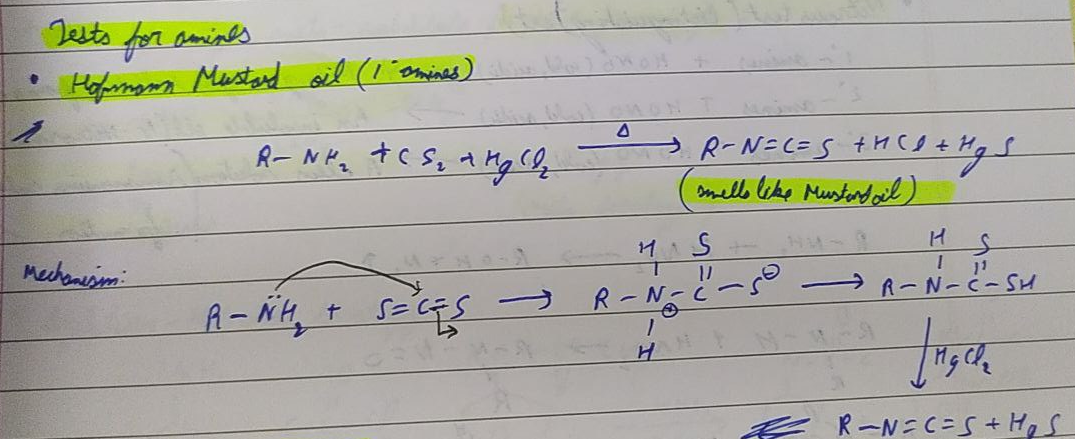 Tests for amines
• Hofmann Mustard oil (1° amines)
R–NH₂ + CS₂ + HgCl₂ —Δ→ R–N=C=S + HCl + HgS
(smells like Mustard oil)
Mechanism:
H S H S
R–N̈H₂ + S=C=S → R–N⊕–C–S⊖ → R–N–C–SH
H
↓ HgCl₂
R–N=C=S + HgS